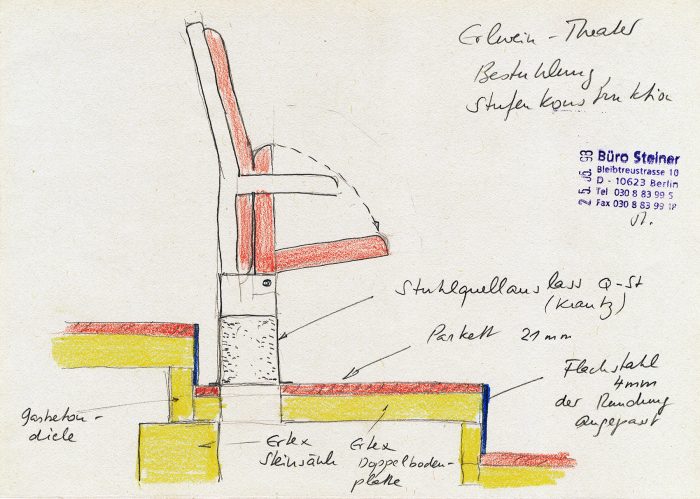 Erlwein-Theater
Bestuhlung,
Stufenkonstruktion
25. 05. 98
Büro Steiner
Bleibtreustrasse 10
D - 10623 Berlin
Tel 030 8 83 99 5
Fax 030 8 83 99 18
Stuhlquellauslass Q-St
(Krantz)
Parkett 21mm
Flachstahl
4mm
der Rundung
angepasst
Gasbeton-
diele
Ertex
Steinsäule
Ertex
Doppelboden-
platte